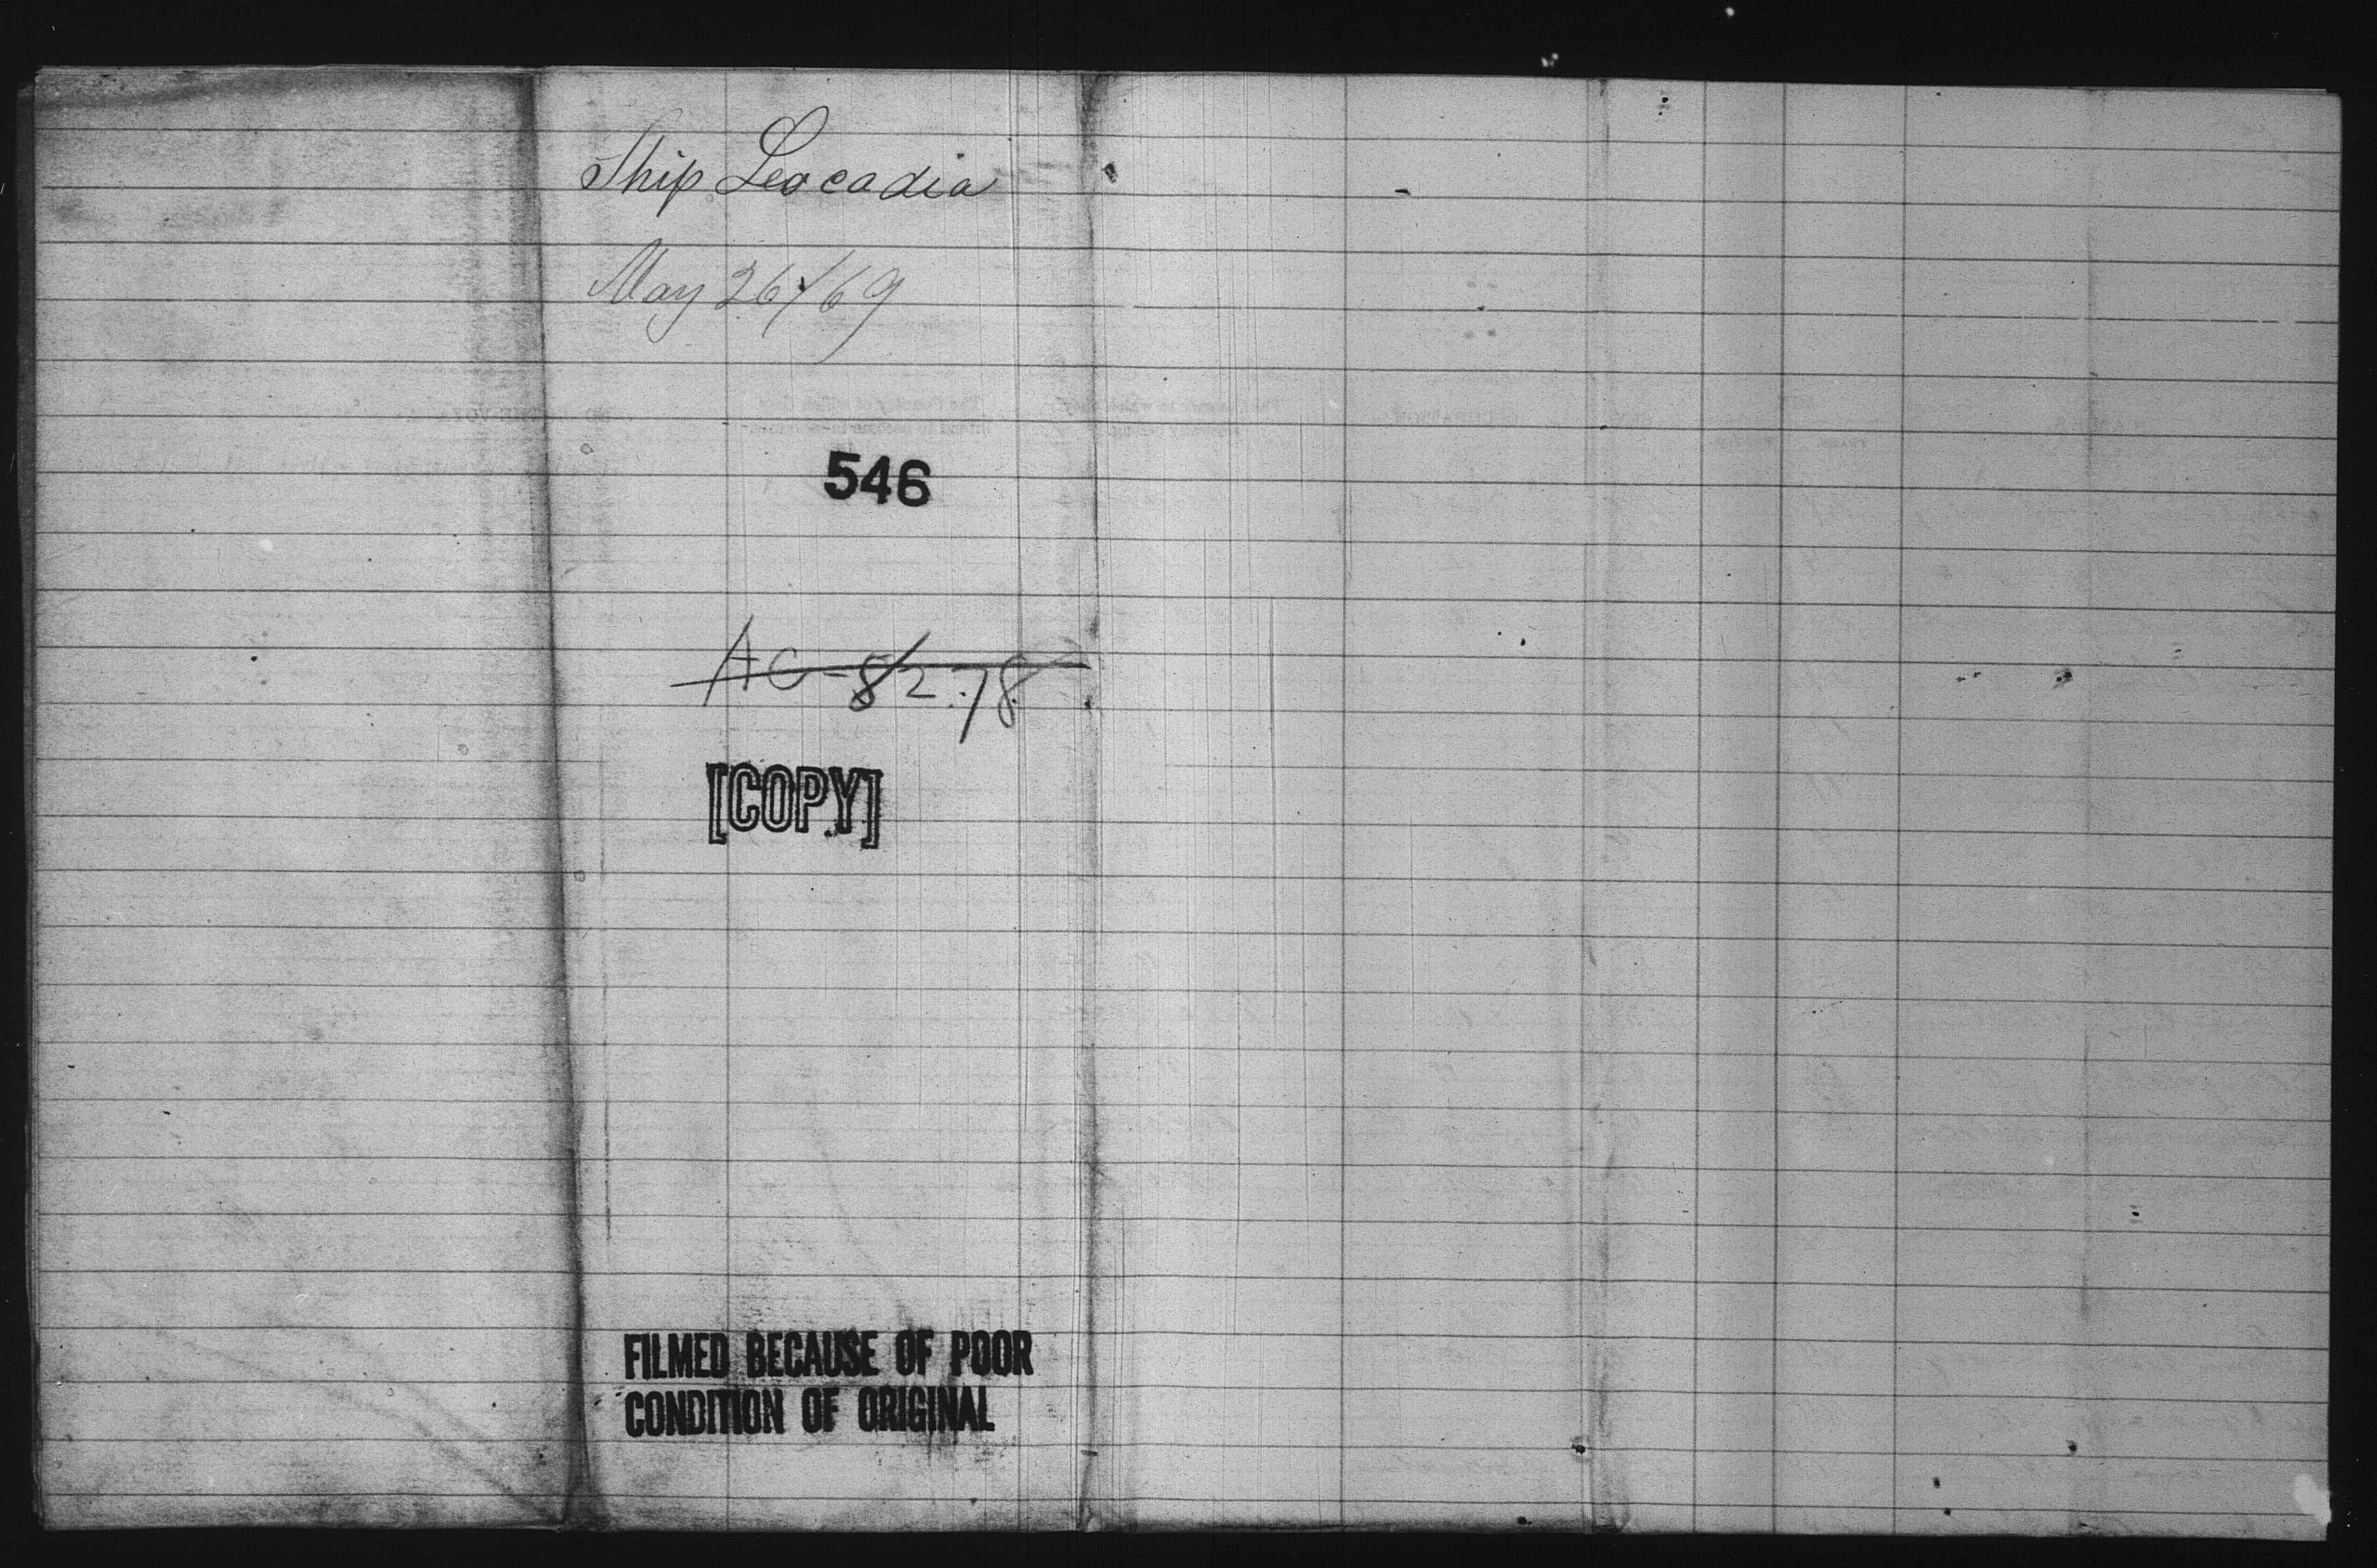 Ship Leocadia
May 26/69
546
AC-82.78
[COPY]
FILMED BECAUSE OF POOR
CONDITION OF ORIGINAL